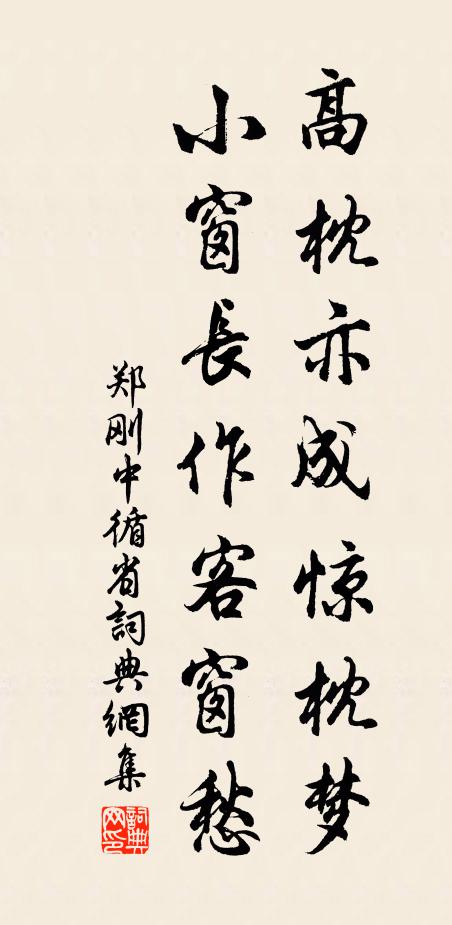 高枕亦成惊枕梦
小窗長作客窗愁
郑刚中循省詞典網集
詞典网印